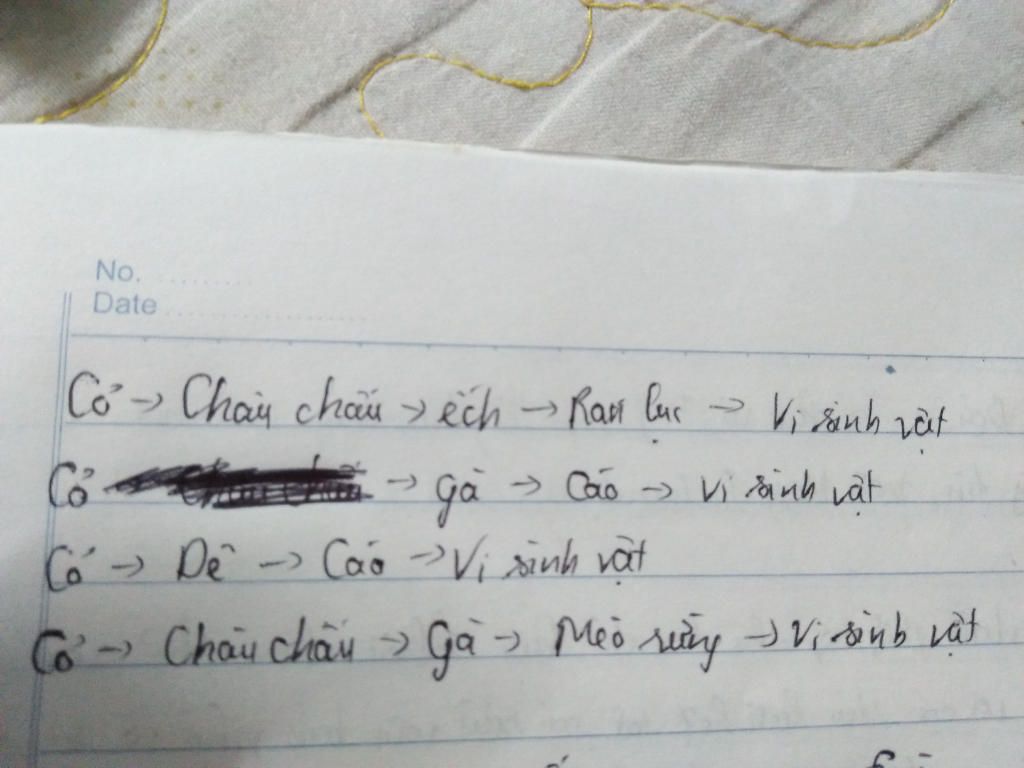 No.
Date
Cỏ → Chàu chấu → ếch → Rắn lục → Vi sinh vật
Cỏ → gà → Cáo → Vi sinh vật
Cỏ → Dê → Cáo → Vi sinh vật
Cỏ → Chàu chấu → Gà → Mèo rừng → Vi sinh vật